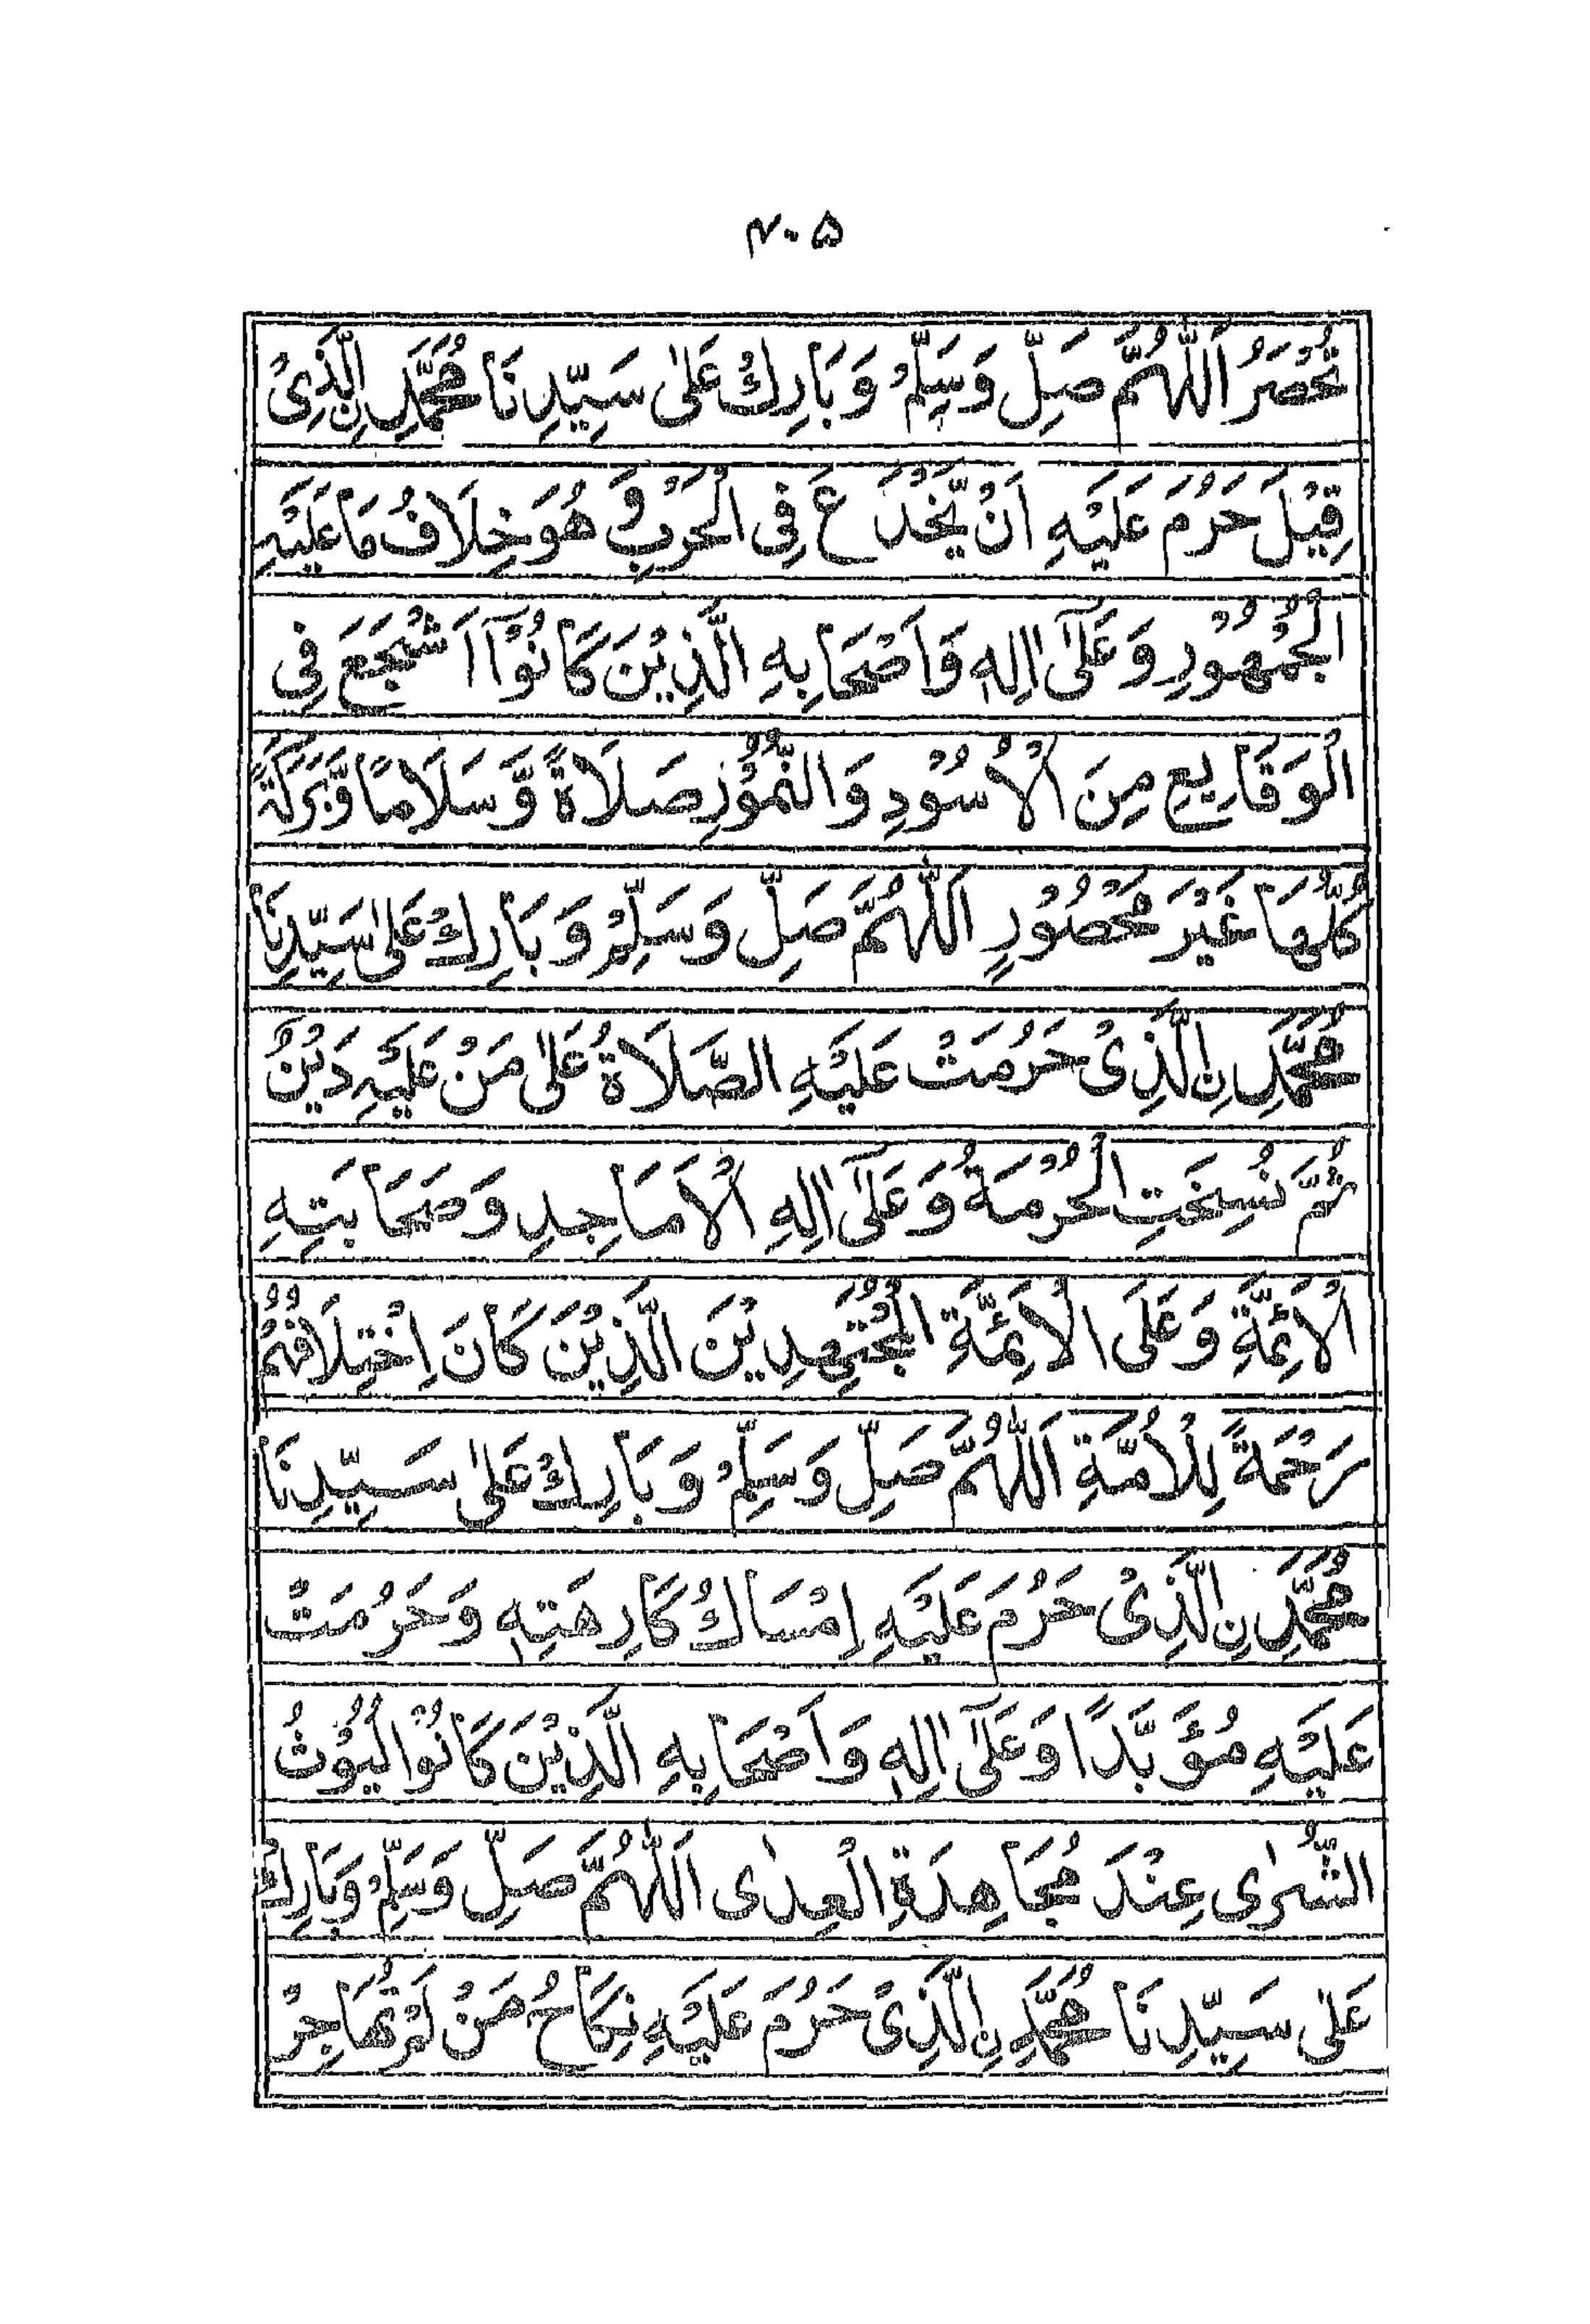 ۴۰۵
تُحْصَرُ اَللّٰهُمَّ صَلِّ وَسَلِّمْ وَبَارِكْ عَلٰى سَيِّدِنَا مُحَمَّدِنِ الَّذِىْ
قِيْلَ حَرُمَ عَلَيْهِ اَنْ يَّخْدَعَ فِى الْحَرْبِ وَ هُوَ خِلَافُ مَا عَلَيْهِ
الْجُمْهُوْرِ وَعَلٰٓى اٰلِهٖ وَاَصْحَابِهِ الَّذِيْنَ كَانُوْٓا اَشْجَعَ فِى
الْوَقَايِعِ مِنَ الْاُسُوْدِ وَالنُّمُوْرِ صَلَاةً وَّسَلَامًا وَّبَرَكَةً
كُلُّهَا غَيْرَ مَحْصُوْرٍ اَللّٰهُمَّ صَلِّ وَسَلِّمْ وَبَارِكْ عَلٰى سَيِّدِنَا
مُحَمَّدِنِ الَّذِىْ حَرُمَتْ عَلَيْهِ الصَّلَاةُ عَلٰى مَنْ عَلَيْهِ دَيْنٌ
ثُمَّ نُسِخَتِ الْحُرْمَةُ وَعَلٰٓى اٰلِهِ الْاَمَاجِدِ وَصَحَابَتِهِ
الْاَئِمَّةِ وَعَلَى الْاَئِمَّةِ الْمُجْتَهِدِيْنَ الَّذِيْنَ كَانَ اِخْتِلَافُهُمْ
رَحْمَةً لِلْاُمَّةِ اَللّٰهُمَّ صَلِّ وَسَلِّمْ وَبَارِكْ عَلٰى سَيِّدِنَا
مُحَمَّدِنِ الَّذِىْ حَرُمَ عَلَيْهِ اِمْسَاكُ كَارِهَتِهٖ وَحَرُمَتْ
عَلَيْهِ مُؤَبَّدًا وَعَلٰٓى اٰلِهٖ وَاَصْحَابِهِ الَّذِيْنَ كَانُوْا لُيُوْثُ
الشُّرٰى عِنْدَ مُجَاهِدَةِ الْعِدٰى اَللّٰهُمَّ صَلِّ وَسَلِّمْ وَبَارِكْ
عَلٰى سَيِّدِنَا مُحَمَّدِنِ الَّذِىْ حَرُمَ عَلَيْهِ نِكَاحُ مَنْ لَمْ تُهَاجِرْ